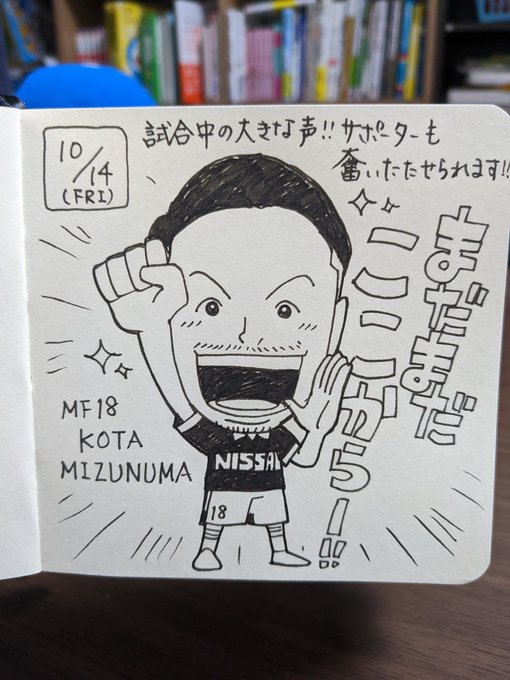 10/14
(FRI)
試合中の大きな声!!サポーターも
奮いたたせられます!!
まだまだ
ここから一!!
MF18
KOTA
MIZUNUMA
NISSAN
18